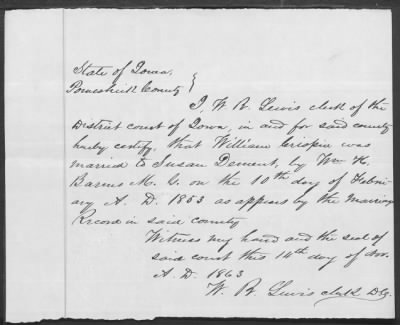 State of Iowa,
Poweshiek County }
I, W. R. Lewis clerk of the
District court of Iowa, in and for said county
hereby certify, that William Crispin was
married to Susan Dement, by Wm H.
Barnes M. G. on the 10th day of Febru
ary A. D. 1853 as appears by the Marriage
Record in said county
Witness my hand and the seal of
said court this 14th day of Nov.
A. D. 1863
W. R. Lewis clerk D.C.